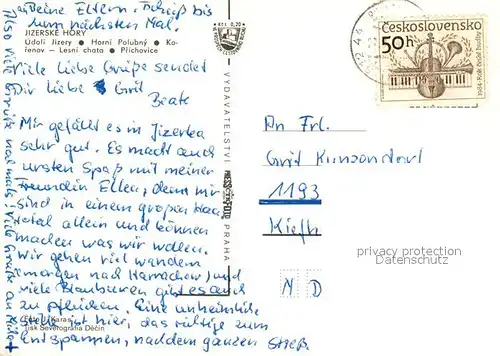 Deine Eltern. Tschüß bis
zum nächsten Mal.
JIZERSKÉ HORY
Údolí Jizery • Horní Polubný • Ko-
řenov — Lesní chata • Příchovice
Viele liebe Grüße sendet
Dir liebe Grit
Beate
Mir gefällt es in Jizerka
sehr gut. Es macht auch
ursten Spaß mit meiner
Freundin Ellen, denn wir
sind in einem großen
Hotel allein und können
machen was wir wollen.
Wir gehen viel wandern
(morgen nach Harrachov) und
viele Blaubeeren gibt es auch
zu pflücken. Eine unheimliche
Stelle ist hier, das richtige zum
Entspannen, nach dem ganzen Streß.
Karas
Tisk Severografia Děčín
VYDAVATELSTVÍ PRESSFOTO PRAHA
Kčs 0,20
Československo
50 h
1984-Rok české hudby
An Frl.
Grit Kunzendorf
1193
N D
privacy protection
Datenschutz